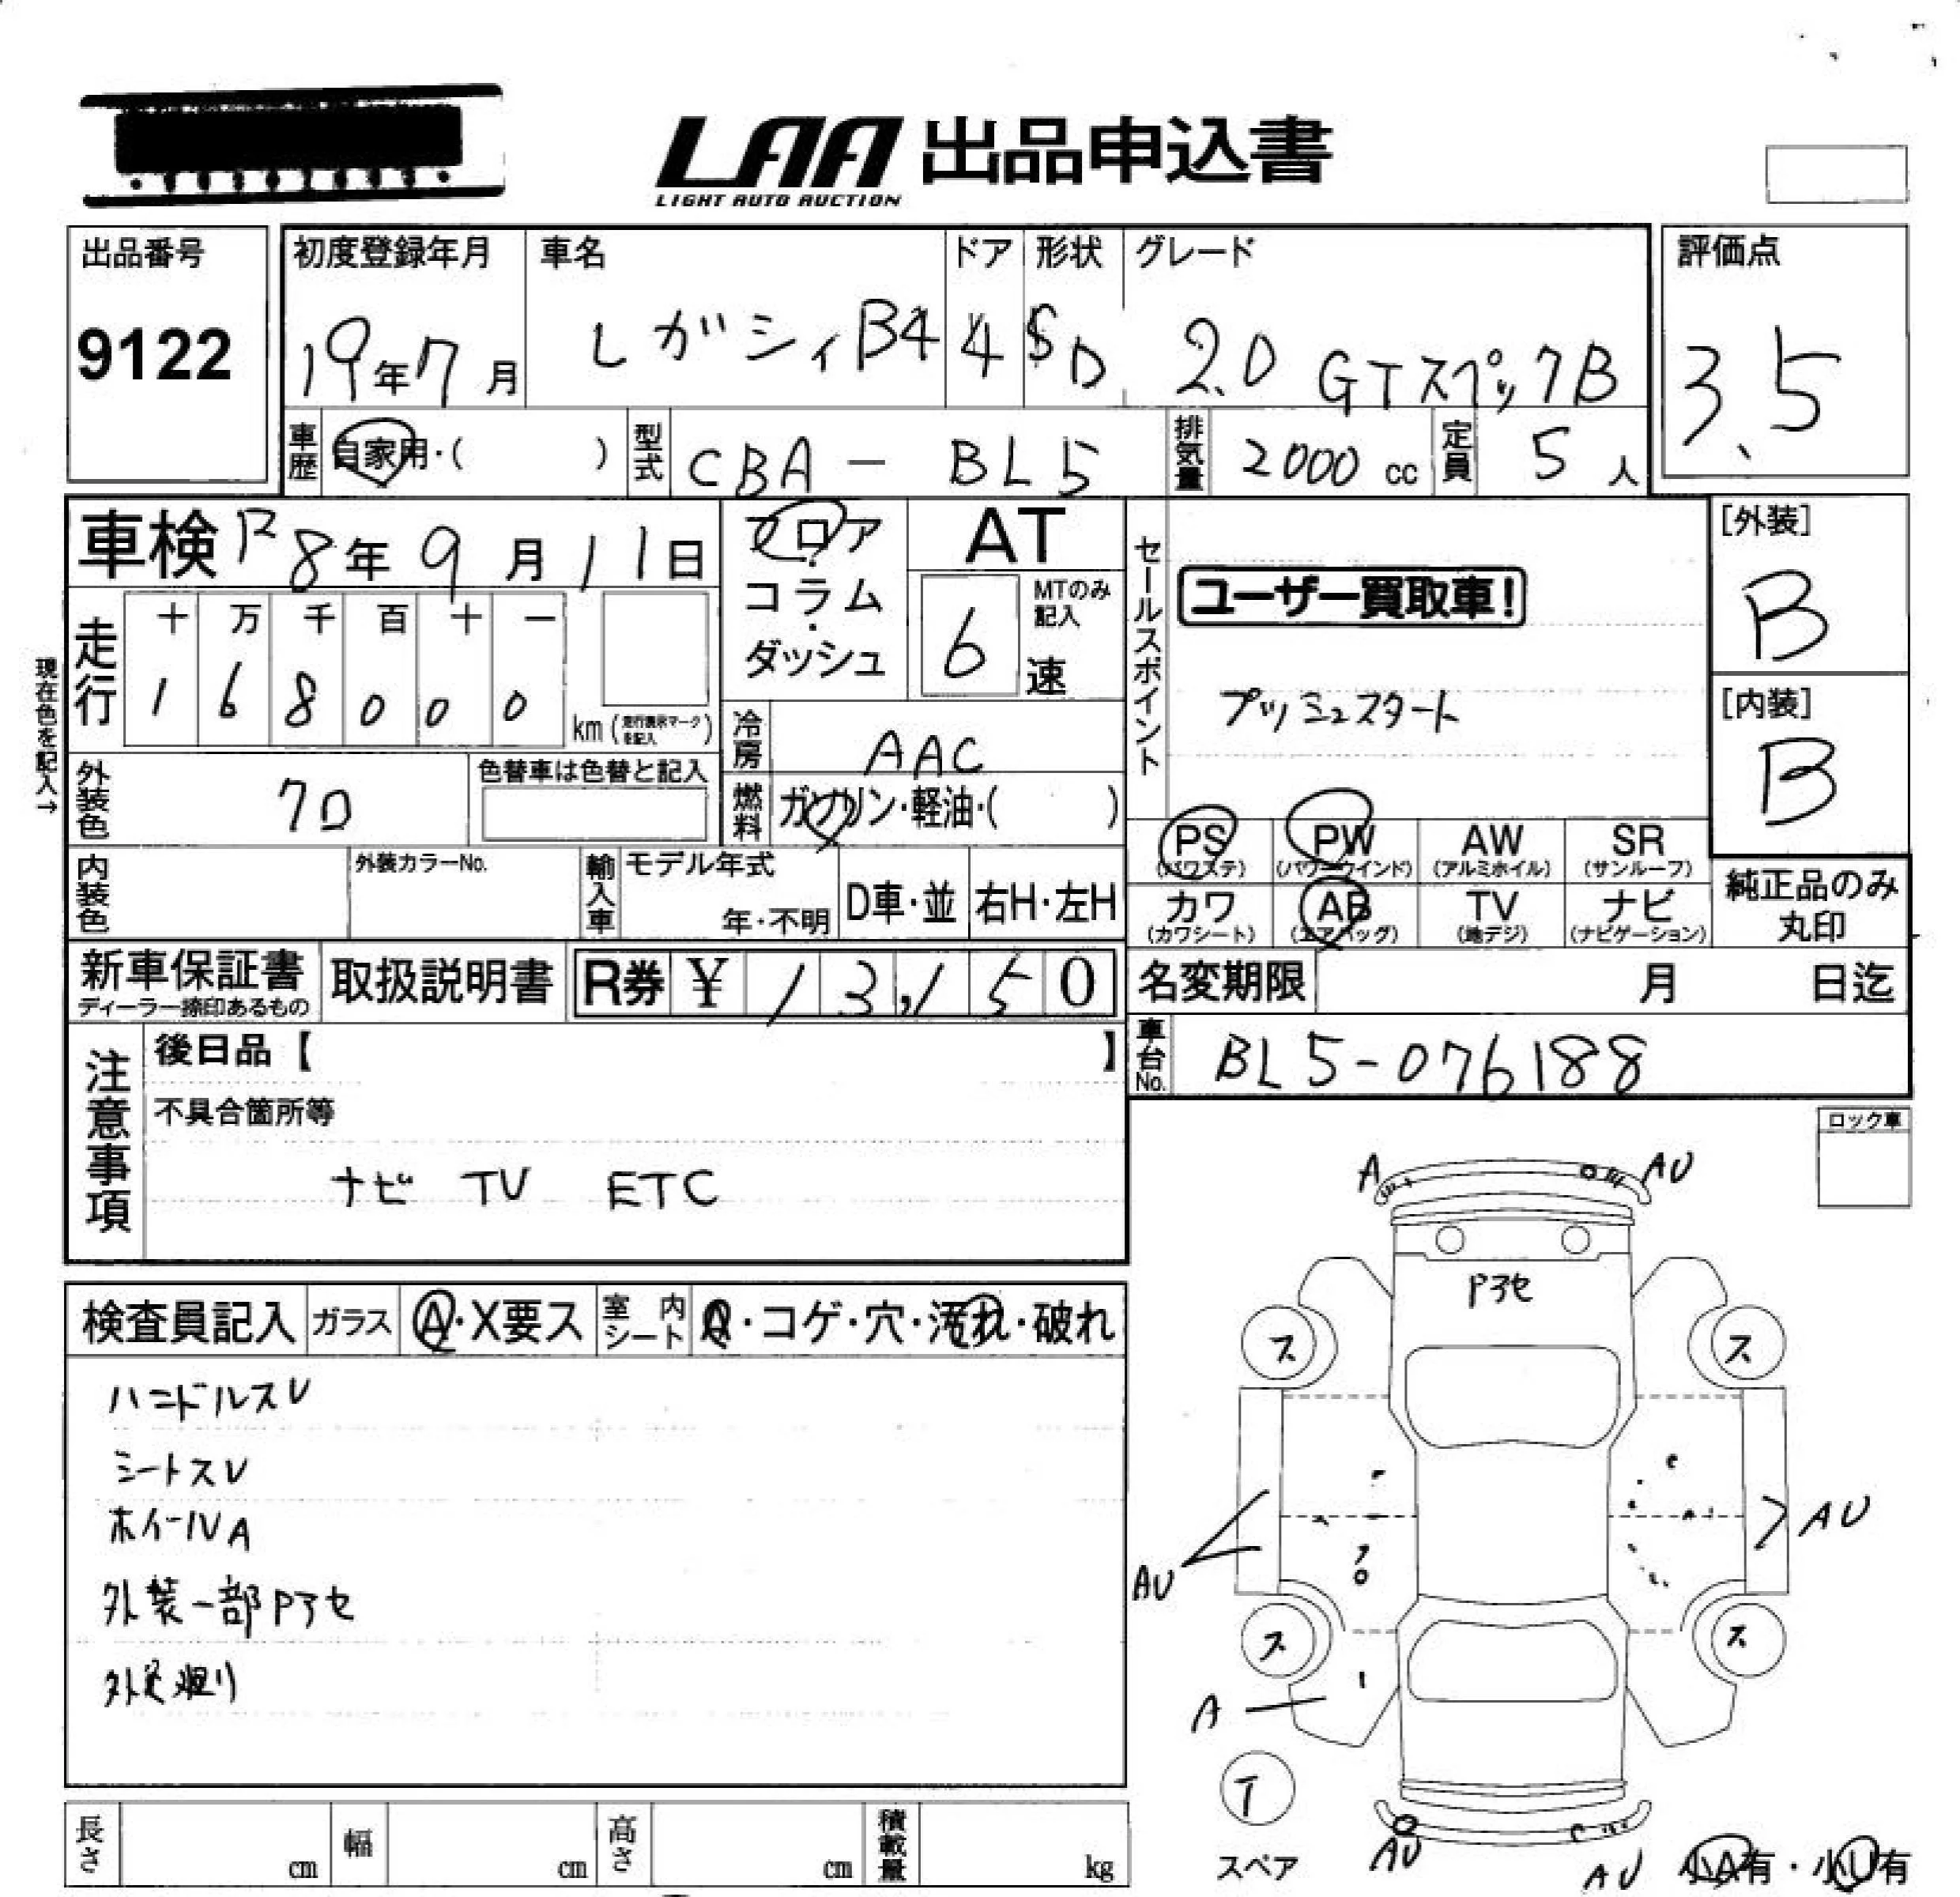 LAA 出品申込書
LIGHT AUTO AUCTION
出品番号
9122
初度登録年月
19年7月
車名
レガシィB4
ドア
4
形状
SD
グレード
2.0 GTスペックB
評価点
3.5
車歴 自家用・( )
型式 CBA - BL5
排気量 2000 cc
定員 5 人
車検 R8年9月11日
フロア・コラム・ダッシュ
AT
MTのみ記入
6速
セールスポイント
ユーザー買取車!
プッシュスタート
[外装]
B
[内装]
B
現在色を記入→
走行
十 万 千 百 十 一
1 6 8 0 0 0
km (走行表示マークを記入)
冷房 AAC
外装色 クロ
色替車は色替と記入
燃料 ガソリン・軽油・( )
PS (パワステ)
PW (パワーウインド)
AW (アルミホイル)
SR (サンルーフ)
カワ (カワシート)
AB (エアバッグ)
TV (地デジ)
ナビ (ナビゲーション)
純正品のみ丸印
内装色
外装カラーNo.
輸入車
モデル年式
年・不明
D車・並
右H・左H
新車保証書
ディーラー捺印あるもの
取扱説明書
R券 ¥ 13,150
名変期限 月 日迄
車台No. BL5-076188
注意事項
後日品【 】
不具合箇所等
ナビ TV ETC
ロック車
検査員記入
ガラス Ⓐ・X要ス
室内シート
・コゲ・穴・汚れ・破れ
ハンドルスレ
シートスレ
ホイールA
外装一部Pアセ
A
AU
Pアセ
ス
ス
AU
AU
ス
ス
A
T
スペア
AU
AU
小A有・小U有
長さ cm
幅 cm
高さ cm
積載量 kg